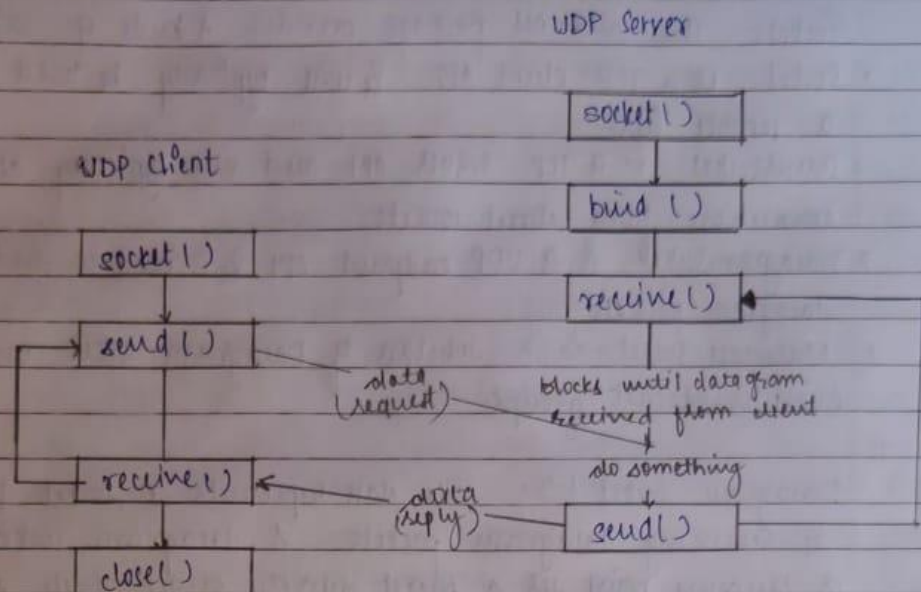 UDP Server
socket()
bind ()
receive()
blocks until datagram
received from client
do something
send()
UDP Client
socket()
send()
data
(request)
receive()
data
(reply)
close()